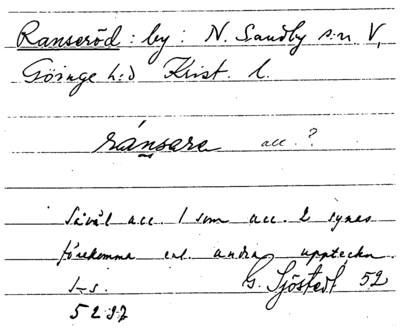 Ranseröd : by : N. Sandby s:n V.
Göinge h:d Krist. l.
ránsarə acc. ?
Såväl acc. 1 som acc. 2 synes
förekomma enl. andra uppteckn.
G. Sjöstedt 52
5237